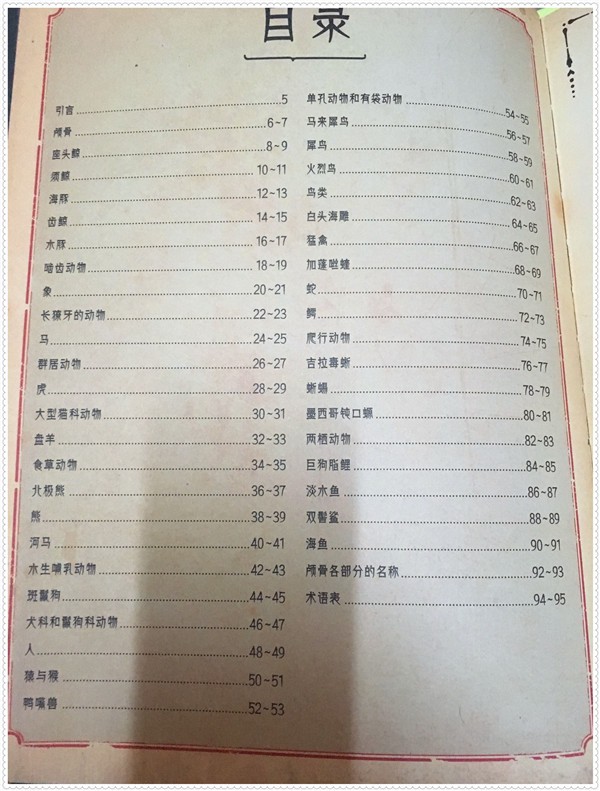 目录
引言 5
颅骨 6~7
座头鲸 8~9
须鲸 10~11
海豚 12~13
齿鲸 14~15
水豚 16~17
啮齿动物 18~19
象 20~21
长獠牙的动物 22~23
马 24~25
群居动物 26~27
虎 28~29
大型猫科动物 30~31
盘羊 32~33
食草动物 34~35
北极熊 36~37
熊 38~39
河马 40~41
水生哺乳动物 42~43
斑鬣狗 44~45
犬科和鬣狗科动物 46~47
人 48~49
猿与猴 50~51
鸭嘴兽 52~53
单孔动物和有袋动物 54~55
马来犀鸟 56~57
犀鸟 58~59
火烈鸟 60~61
鸟类 62~63
白头海雕 64~65
猛禽 66~67
加蓬咝蝰 68~69
蛇 70~71
鳄 72~73
爬行动物 74~75
吉拉毒蜥 76~77
蜥蜴 78~79
墨西哥钝口螈 80~81
两栖动物 82~83
巨狗脂鲤 84~85
淡水鱼 86~87
双髻鲨 88~89
海鱼 90~91
颅骨各部分的名称 92~93
术语表 94~95